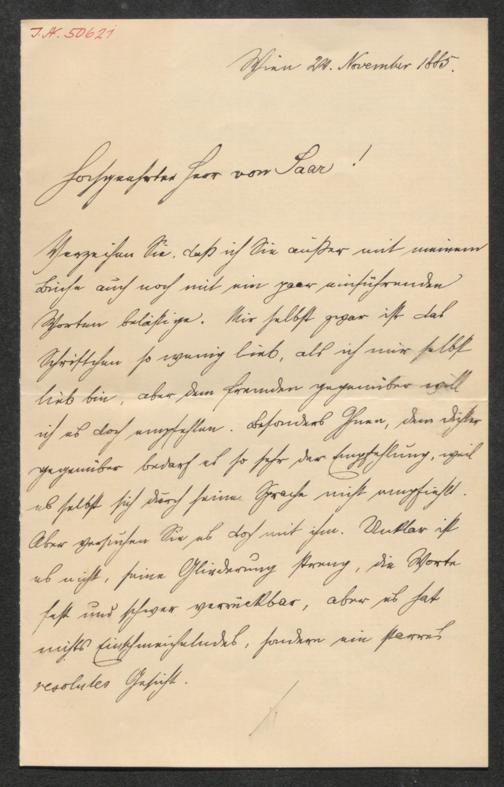 J.N. 50621
Wien 24. November 1885.
Hochgeehrter Herr von Saar!
Verzeihen Sie, daß ich Sie außer mit meinem
Buche auch noch mit ein paar einführenden
Worten belästige. Mir selbst zwar ist das
Schriftchen so wenig lieb, als ich mir selbst
lieb bin, aber dem Fremden gegenüber will
ich es doch empfehlen. Besonders Ihnen, dem Dichter
gegenüber bedarf es so sehr der Empfehlung, weil
es selbst sich durch seine Sprache nicht empfiehlt.
Aber versuchen Sie es doch mit ihm. Unklar ist
es nicht, seine Gliederung streng, die Worte
fest und schwer verrückbar, aber es hat
nichts Einschmeichelndes, sondern ein starres
resolutes Gesicht.